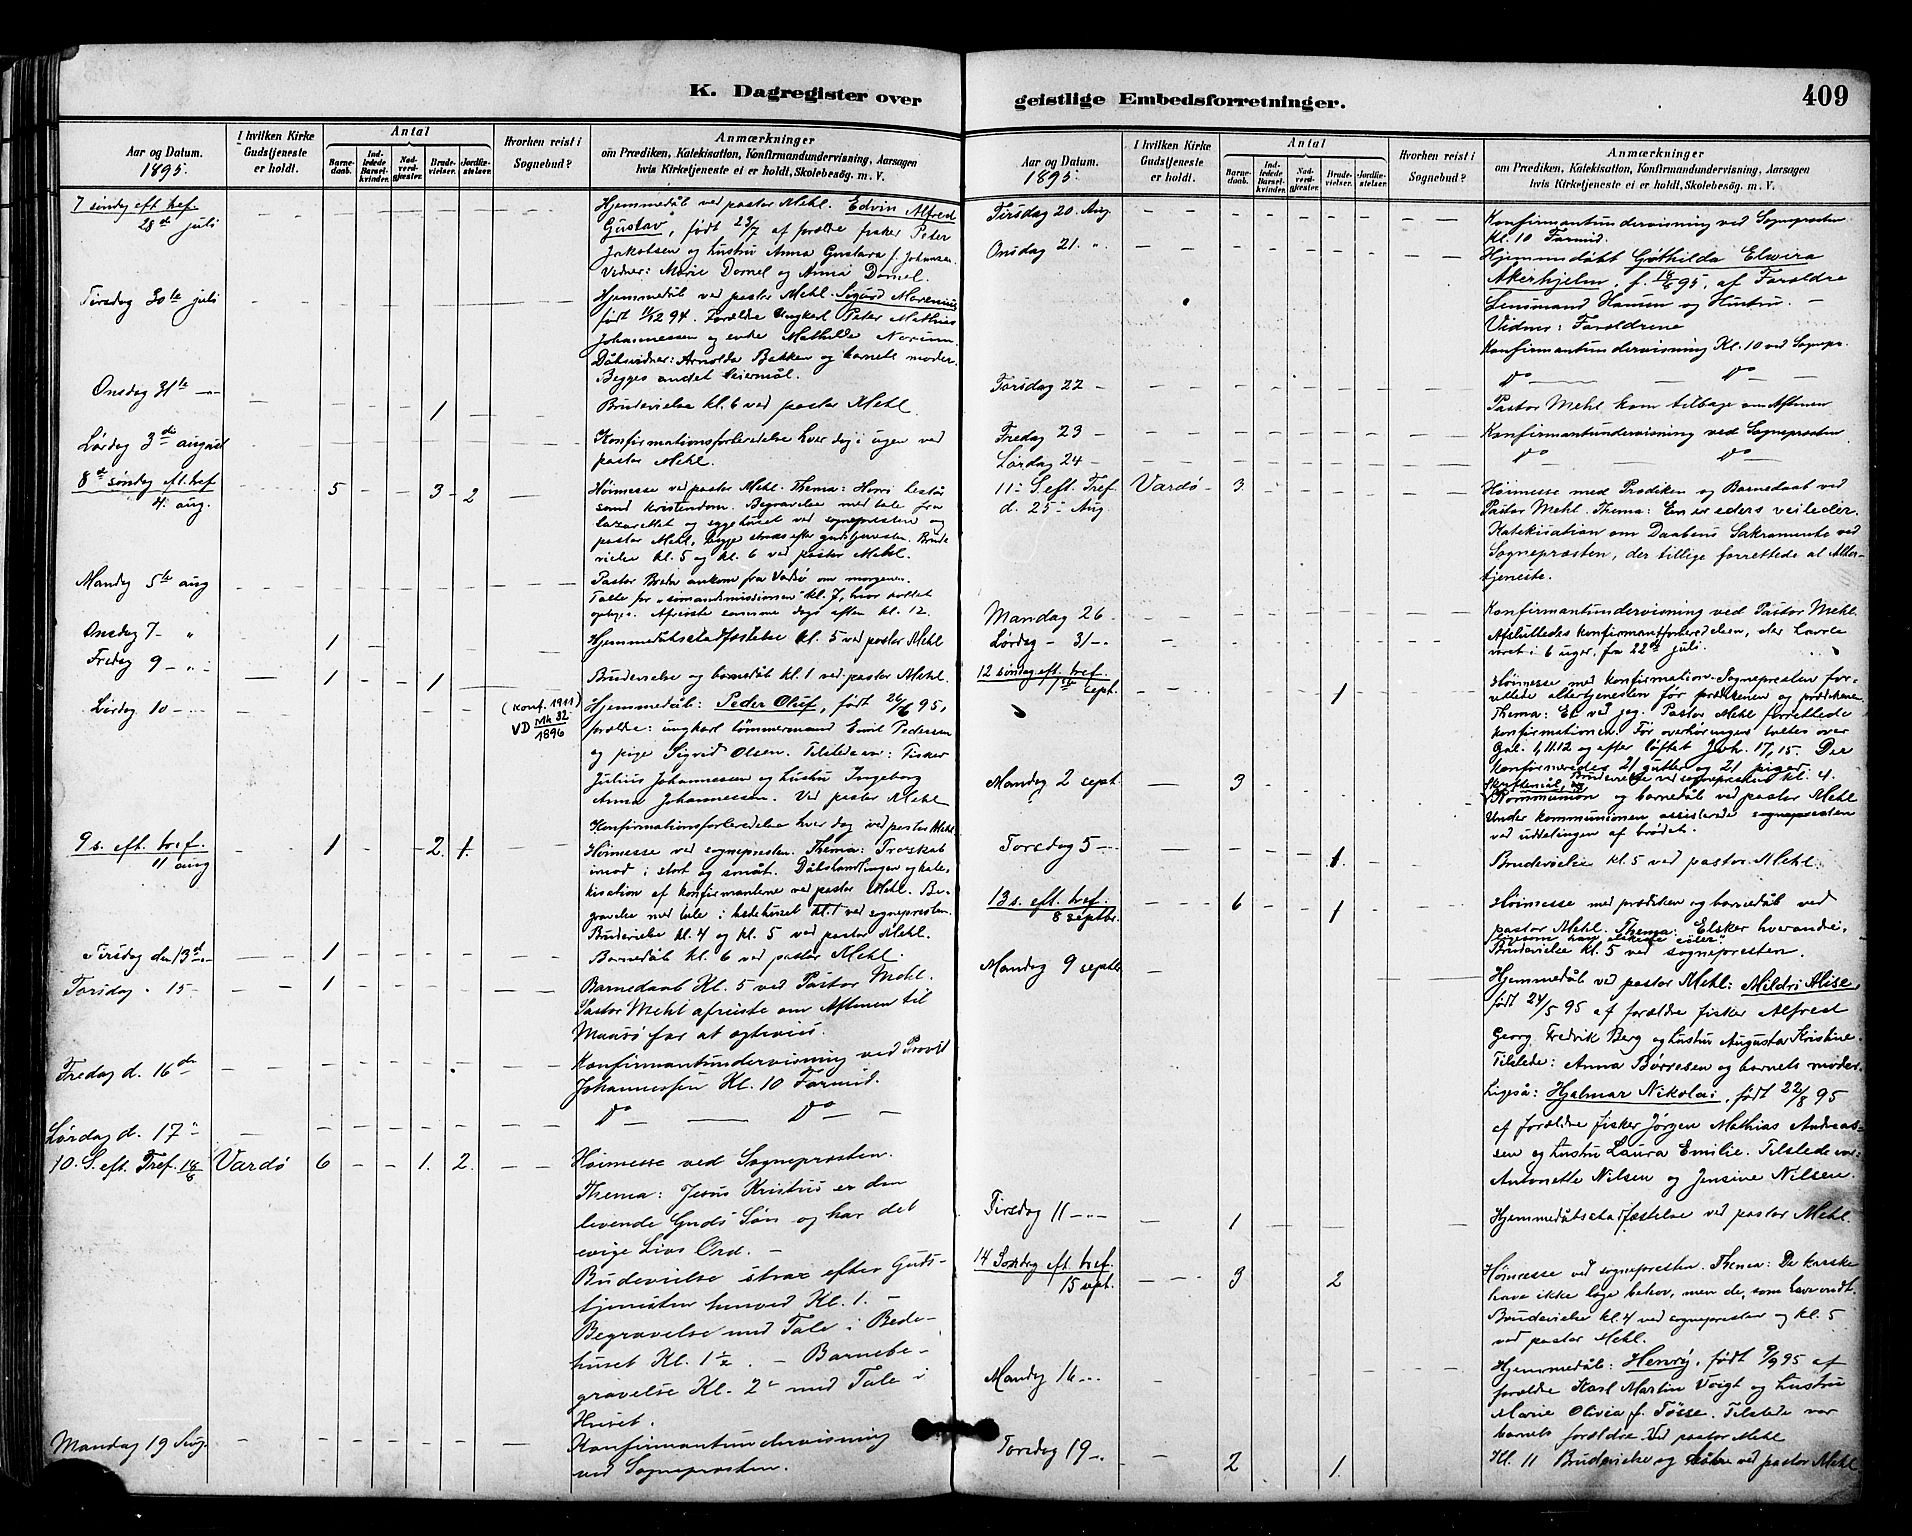 K. Dagregister over
Aar og Datum.
1895.
I hvilken Kirke
Gudstjeneste
er holdt.
Antal
Barne-
daab.
Ind-
ledede
Barsel-
kvinder.
Nad-
verd-
gjester.
Brude-
vielser.
Jordfæ-
stelser.
Hvorhen reist i
Sognebud?
Anmærkninger
om Prædiken, Katekisation, Konfirmandundervisning, Aarsagen
hvis Kirketjeneste ei er holdt, Skolebesøg. m. V.
7 søndag eft. tref.
28de juli
Hjemmedåb ved pastor Mehl. Edvin Alfred
Gustav, født 23/7 af forældre fisker Peter
Jakobsen og hustru Anna Gustava f. Johansen.
Vidner: Marie Dornel og Anna Dornel.
Tirsdag 30te juli
Hjemmedåb ved pastor Mehl. Sigurd Marenius
født 1/12 94. Forældre Ungkarl Peter Mathias
Johannessen og enke Mathilde Norum.
Dåbsvidner: Arnolda Bakken og barnets moder.
Begges andet leiermål.
Onsdag 31te 1
Brudevielse kl. 6 ved pastor Mehl.
Lørdag 3die august
Konfirmationsforberedelse hver dag i ugen ved
pastor Mehl.
8de søndag eft. tref
4. aug. 5 3 2
Høimesse ved pastor Mehl. Thema: Hvori består
sand kristendom. Begravelse med tale fra
lazarettet og sygehuset ved sognepresten og
pastor Mehl, begge straks efter gudstjenesten. Brude
vielse kl. 5 og kl. 6 ved pastor Mehl.
Mandag 5te aug
Pastor Breda ankom fra Vadsø om morgenen.
Talte for "sømandsmissionen" kl. 7,
Afreiste samme dags aften kl. 12.
Onsdag 7 - " 1
Hjemmedåbsstadfæstelse kl. 5 ved pastor Mehl
Fredag 9 - " 1 1
Brudevielse og barnedåb kl. 1 ved pastor Mehl.
Lørdag 10 -
(Konf. 1911)
VD Mk 32
1896
Hjemmedåb: Peder Oluf, født 26/6 95,
forældre: ungkarl tømmermand Emil Pedersen
og pige Sigrid Olsen. Tilstede var: Fisker
Julius Johannessen og hustru Ingeborg
Anna Johannessen. Ved pastor Mehl
Konfirmationsforberedelse hver dag ved pastor Mehl.
9 s. eft. tref.
11 aug 1 2 1.
Høimesse ved sognepresten. Thema: Troskab
imod i stort og småt. Dåbshandlingen og kate-
kisation af konfirmanterne ved pastor Mehl. Be-
gravelse med tale i bedehuset kl. 1 ved sognepresten.
Brudevielse kl. 4 og kl. 5 ved pastor Mehl.
Tirsdag den 13de 1
Barnedåb kl. 6 ved pastor Mehl.
Torsdag - 15 - 1
Barnedaab Kl. 5 ved Pastor Mehl.
Pastor Mehl afreiste om Aftenen til
Maasø for at ægtevies.
Fredag d. 16de
Konfirmantundervisning ved Provst
Johannessen Kl. 10 Formid.
Lørdag d. 17"
Do — Do —
10. S. eft. Tref. 18/8 Vardø 6 1. 2.
Høimesse ved Sognepresten.
Thema: Jesus Kristus er den
levende Guds Søn og har det
evige Livs Ord. —
Budevielse strax efter Guds-
tjenesten henved Kl. 1. —
Begravelse med Tale i Bede-
huset Kl. 1 1/2. — Barnebe-
gravelse Kl. 2 med Tale i
Huset.
Mandag 19 Aug.
Konfirmantundervisning
ved Sognepresten.
geistlige Embedsforretninger.
409
Aar og Datum.
1895.
I hvilken Kirke
Gudstjeneste
er holdt.
Antal
Barne-
daab.
Ind-
ledede
Barsel-
kvinder.
Nad-
verd-
gjester.
Brude-
vielser.
Jordfæ-
stelser.
Hvorhen reist i
Sognebud?
Anmærkninger
om Prædiken, Katekisation, Konfirmandundervisning, Aarsagen
hvis Kirketjeneste ei er holdt, Skolebesøg. m. V.
Tirsdag 20. Aug.
Konfirmantundervisning ved Sognepresten
kl. 10 Formid.
Onsdag 21. "
Hjemmedøbt Gøthilda Elvira
Akerhjelm, f. 18/6 95, af Forældre
Lensmand Hansen og Hustru. —
Vidner: Forældrene
Konfirmantundervisning Kl. 10 ved Sognepr.
Torsdag 22 -
Do — Do —
Pastor Mehl kom tilbage om Aftenen
Fredag 23 -
Konfirmantundervisning ved Sognepresten
Lørdag 24 -
Do Do
11te S. eft. Tref. Vardø 3
d. 25 - Aug.
Høimesse med Prædiken og Barnedaab ved
Pastor Mehl. Thema: En er eders veileder.
Katekisation om Daabens Sakramente ved
Sognepresten, der tillige forrettede al Alter-
tjeneste.
Mandag 26
Konfirmantundervisning ved Pastor Mehl.
Lørdag - 31 -
Afsluttedes konfirmantforberedelsen, der havde
varet i 6 uger, fra 22de juli.
12 søndag eft. tref.
1ste sept. 1
Høimesse med konfirmation. Sognepresten for-
rettede altertjenesten før prædikenen og prædikene
Thema: Et ved jeg. Pastor Mehl forrettede
konfirmationen. Før overhøringen taltes over
Gal. 1, 11.12 og efter løftet Joh. 17, 15. Der
konfirmeredes 21 gutter og 21 piger
Brudevielse ved sognepresten kl. 4.
Mandag 2 sept. 3
Skriftemål, og
Kommunion og barnedåb ved pastor Mehl
Under kommunionen assisterede sognepresten
ved uddelingen af brødet.
Torsdag 5 - 1.
Brudevielse kl. 5 ved pastor Mehl.
13 s. eft. tref.
8 septbr. 6 1
Høimesse med prædiken og barnedåb ved
pastor Mehl. Thema: Elsker hverandre,
ligesom jeg elskede eder".
Brudevielse kl. 5 ved sognepresten.
Mandag 9 septbr
Hjemmedåb ved pastor Mehl: Mildri Alise,
født 24/5 95 af forældre fisker Alfred
Georg Fredrik Berg og hustru Augusta Kristine.
Tilstede: Anna Børresen og barnets moder.
Ligeså: Hjalmar Nikolai, født 22/8 95
af forældre fisker Jørgen Mathias Andreas-
sen og hustru Laura Emilie. Tilstede var:
Antonette Nilsen og Jensine Nilsen.
Tirsdag 11 - 1
Hjemmedåbsstadfæstelse ved pastor Mehl.
14 Søndag eft. tref.
15 sept. 3 2
Høimesse ved sognepresten. Thema: De karske
have ikke læge behov, men de, som have ondt.
Brudevielse kl. 4 ved sognepresten og kl. 5
ved pastor Mehl.
Mandag 16 -
Hjemmedåb: Henry, født 9/9 95 af
forældre Karl Martin Voigt og hustru
Marie Olivia f. Tøsse. Tilstede var
barnets forældre. Ved pastor Mehl
Torsdag 19 - 2 1.
Kl. 11 Brudevielse og dåb ved pastor Mehl